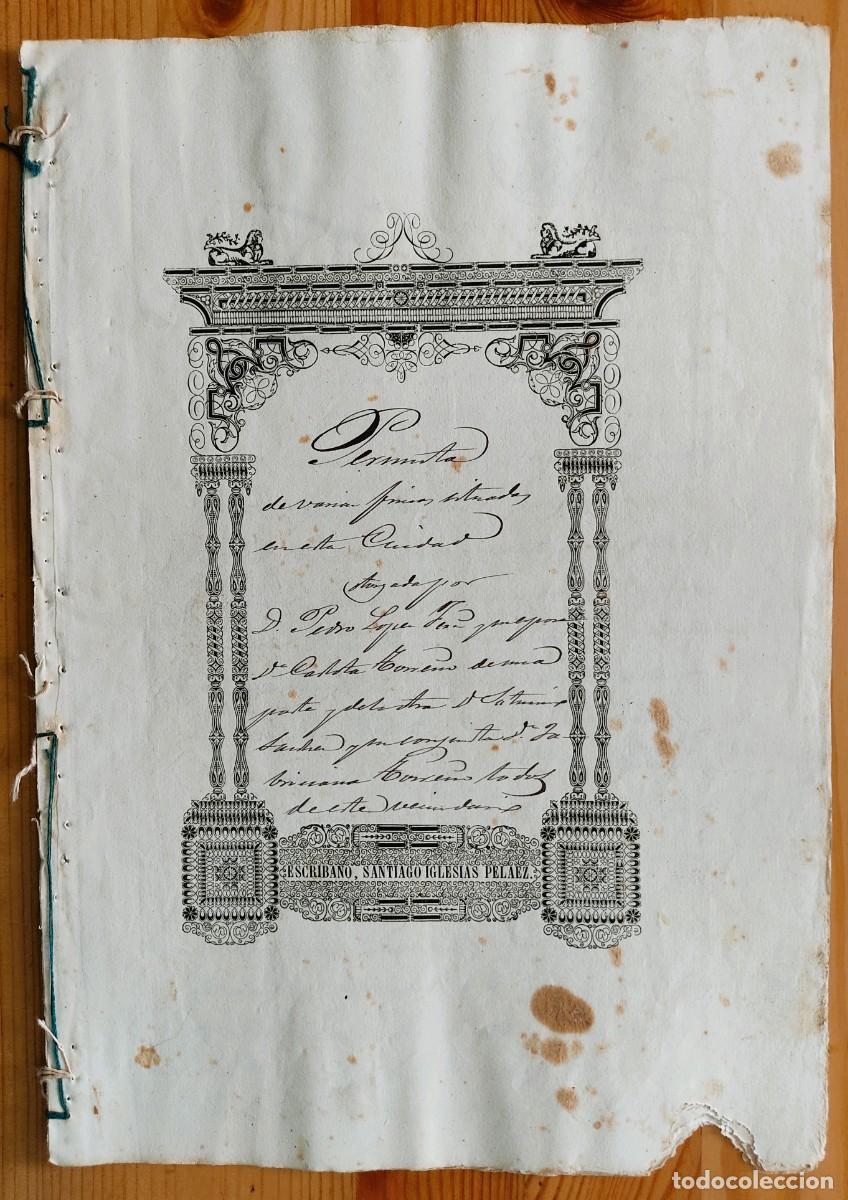 Permuta
de varias fincas situadas
en esta Ciudad
otorgada por
D. Pedro Lopez y su espo
Dª Carlota Torreno de una
parte y de la otra D. Saturnino
Sanchez y su conjunta Dª Fa-
briciana Torreno todos
de este vecindario
ESCRIBANO, SANTIAGO IGLESIAS PELAEZ.
todocoleccion